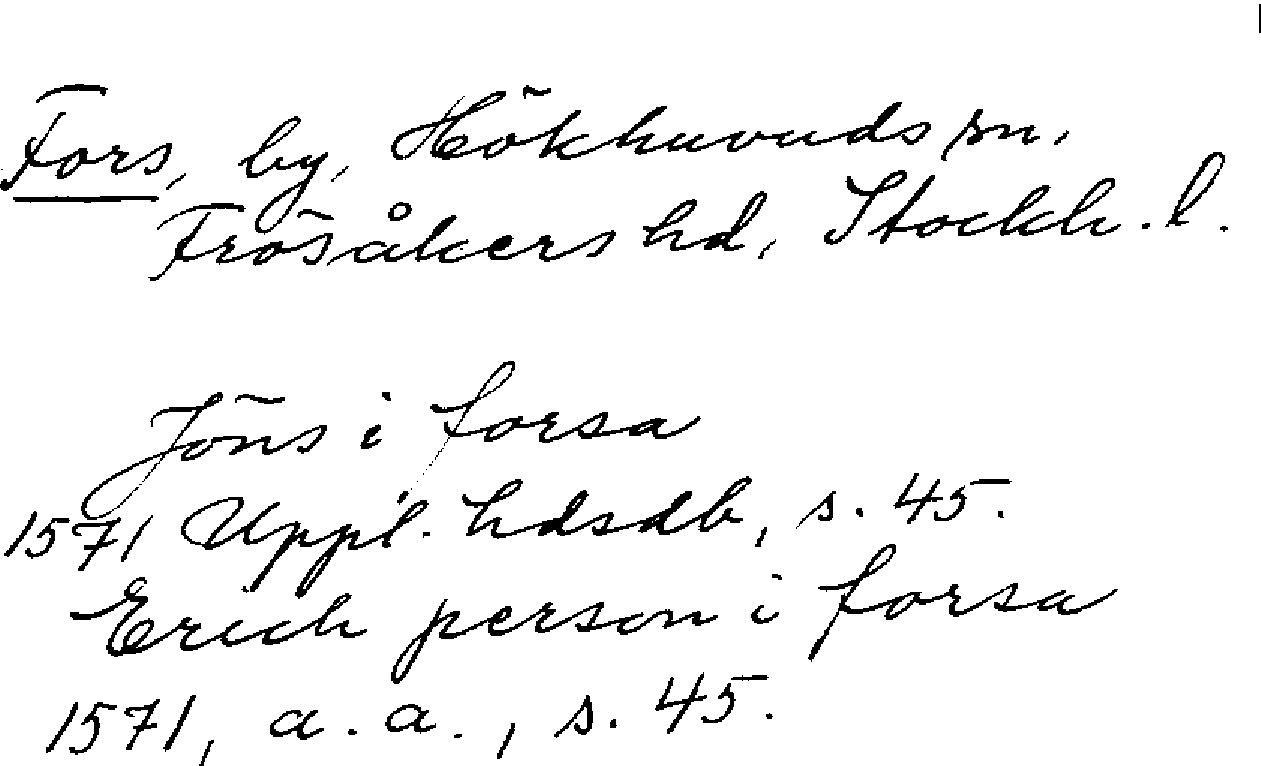 Fors, by, Hökhuvuds sn,
Frösåkers hd, Stockh. l.
Jöns i forsa
1571 Uppl. hdsdb, s. 45.
Erich person i forsa
1571, a. a., s. 45.